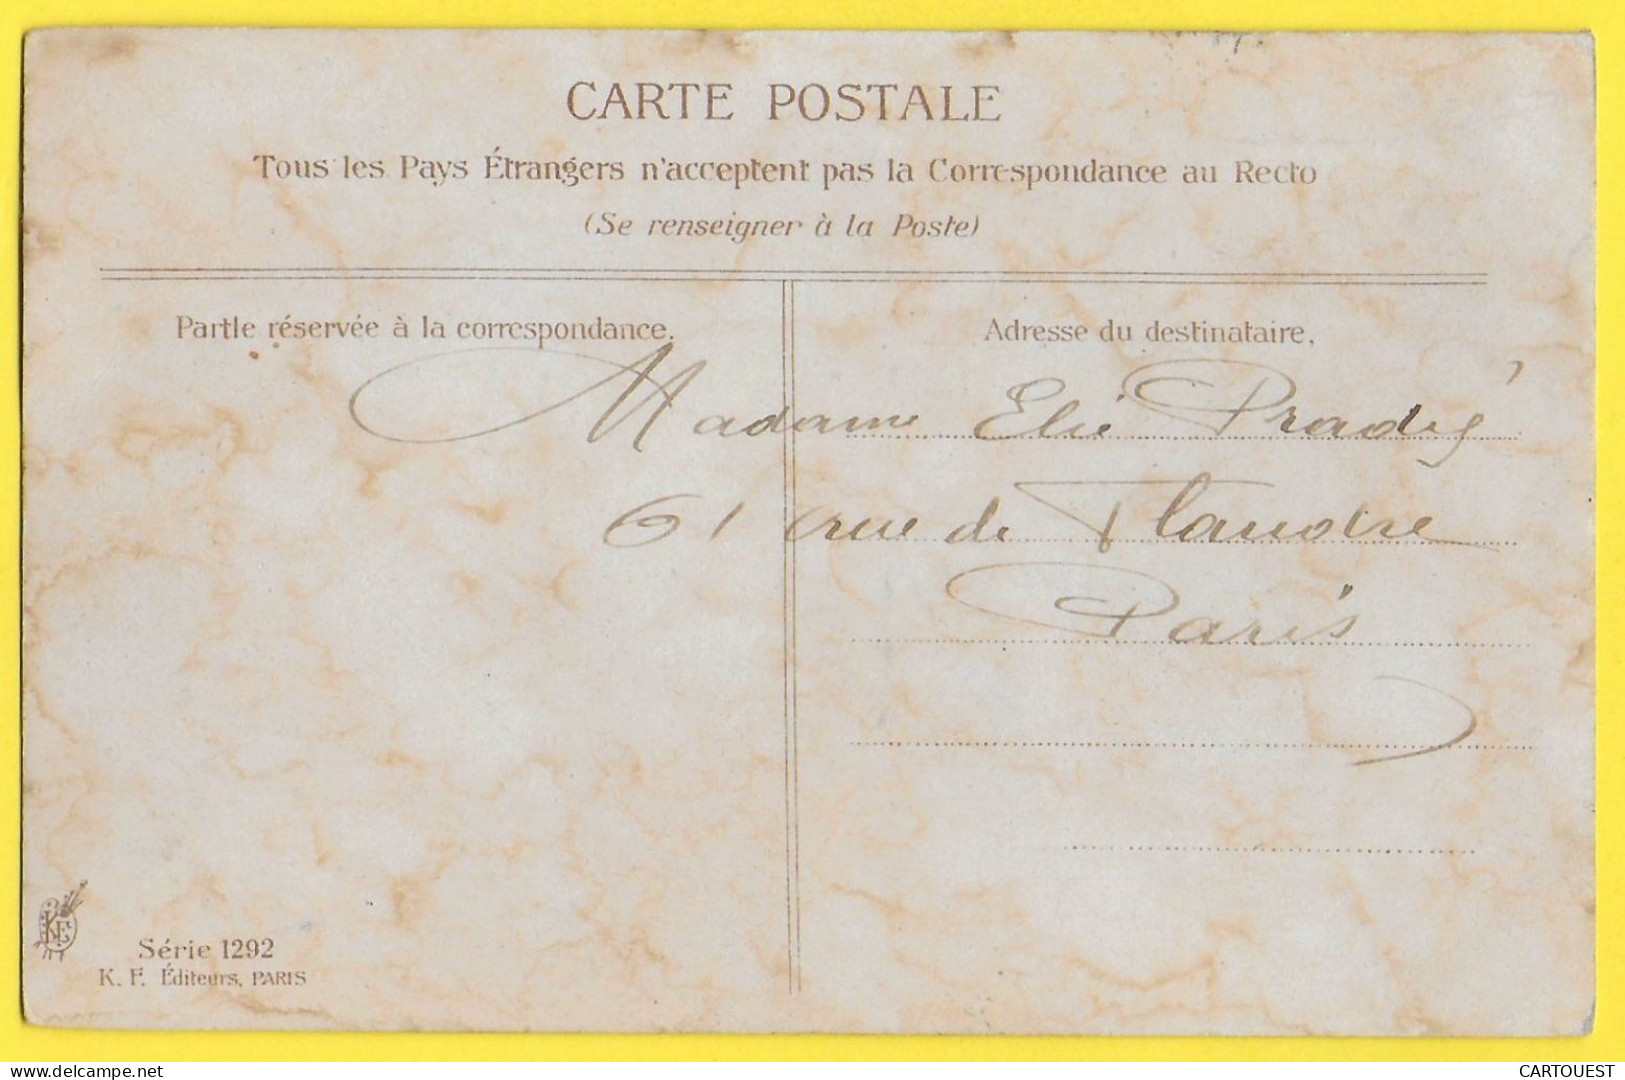 CARTE POSTALE
Tous les Pays Étrangers n'acceptent pas la Correspondance au Recto
(Se renseigner à la Poste)
Partie réservée à la correspondance.
Adresse du destinataire.
Madame Elie
61 rue de Flandre
Paris
KF
Série 1292
K. F. Éditeurs, PARIS
delcampe.net
CARTOUEST